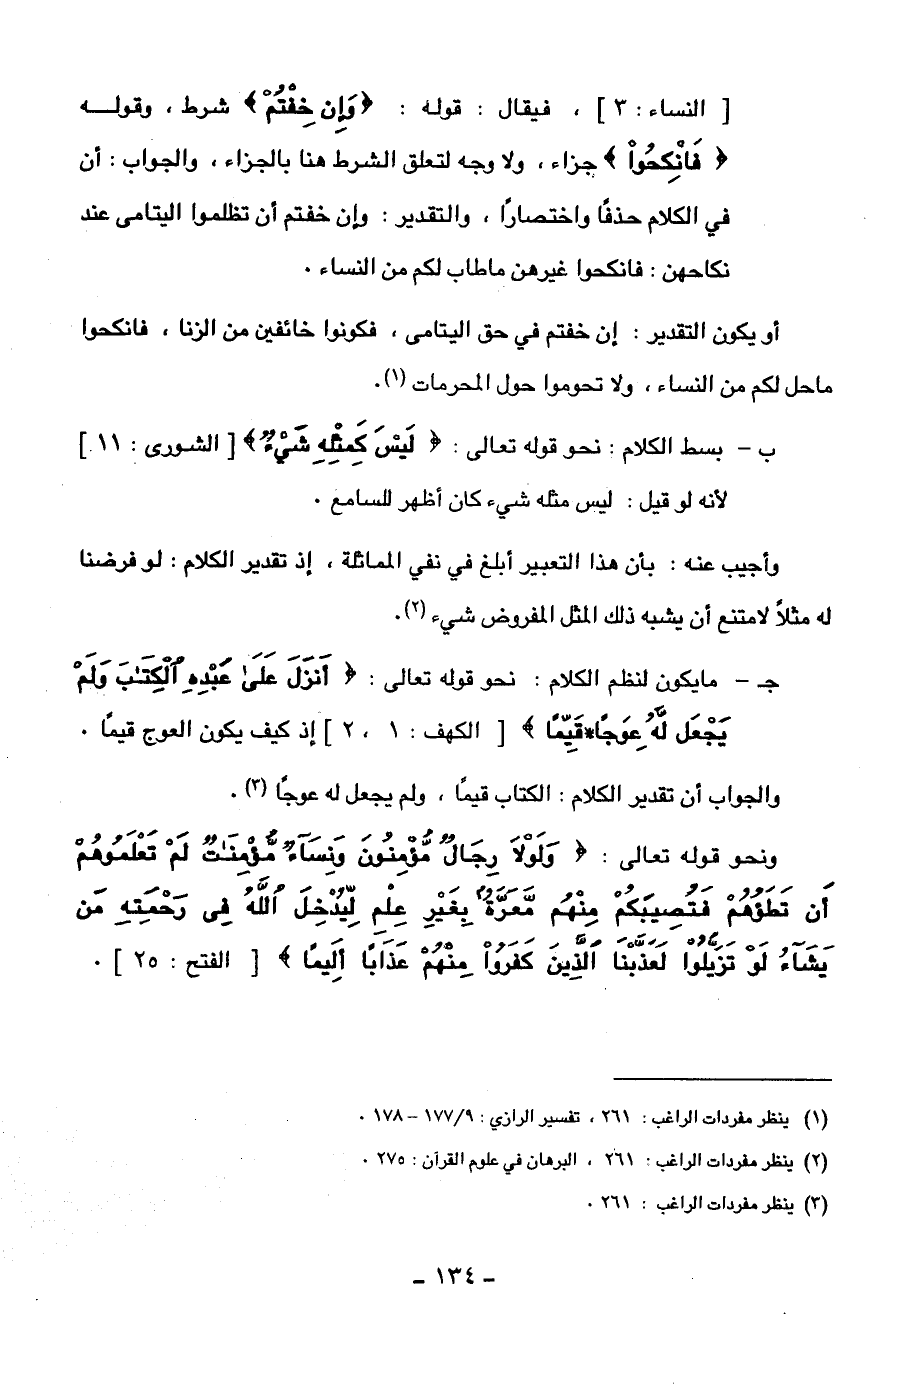 [ النساء : ٣ ] ، فيقال : قوله : ﴿ وَإِن خِفْتُمْ ﴾ شرط ، وقولـــه
﴿ فَانْكِحُواْ ﴾ جزاء ، ولا وجه لتعلق الشرط هنا بالجزاء ، والجواب : أن
في الكلام حذفًا واختصارًا ، والتقدير : وإن خفتم أن تظلموا اليتامى عند
نكاحهن : فانكحوا غيرهن ماطاب لكم من النساء .
أو يكون التقدير : إن خفتم في حق اليتامى ، فكونوا خائفين من الزنا ، فانكحوا
ماحل لكم من النساء ، ولا تحوموا حول المحرمات (١).
ب – بسط الكلام : نحو قوله تعالى : ﴿ لَيْسَ كَمِثْلِهِ شَيْءٌ ﴾ [ الشورى : ١١ ]
لأنه لو قيل : ليس مثله شيء كان أظهر للسامع .
وأجيب عنه : بأن هذا التعبير أبلغ في نفي المماثلة ، إذ تقدير الكلام : لو فرضنا
له مثلاً لامتنع أن يشبه ذلك المثل المفروض شيء (٢).
جـ – مايكون لنظم الكلام : نحو قوله تعالى : ﴿ أَنزَلَ عَلَىٰ عَبْدِهِ ٱلْكِتَٰبَ وَلَمْ
يَجْعَل لَّهُ عِوَجًا*قَيِّمًا ﴾ [ الكهف : ١ ، ٢ ] إذ كيف يكون العوج قيمًا .
والجواب أن تقدير الكلام : الكتاب قيمًا ، ولم يجعل له عوجًا (٣) .
ونحو قوله تعالى : ﴿ وَلَوْلَا رِجَالٌ مُّؤْمِنُونَ وَنِسَآءٌ مُّؤْمِنَٰتٌ لَمْ تَعْلَمُوهُمْ
أَن تَطَؤُهُمْ فَتُصِيبَكُمْ مِنْهُم مَّعَرَّةٌ بِغَيْرِ عِلْمٍ لِيُدْخِلَ ٱللَّهُ فِى رَحْمَتِهِ مَن
يَشَآءُ لَوْ تَزَيَّلُوا لَعَذَّبْنَا ٱلَّذِينَ كَفَرُواْ مِنْهُمْ عَذَابًا أَلِيمًا ﴾ [ الفتح : ٢٥ ] .
(١) ينظر مفردات الراغب : ٢٦١ ، تفسير الرازي : ١٧٧/٩ – ١٧٨ .
(٢) ينظر مفردات الراغب : ٢٦١ ، البرهان في علوم القرآن : ٢٧٥ .
(٣) ينظر مفردات الراغب : ٢٦١ .
– ١٣٤ –